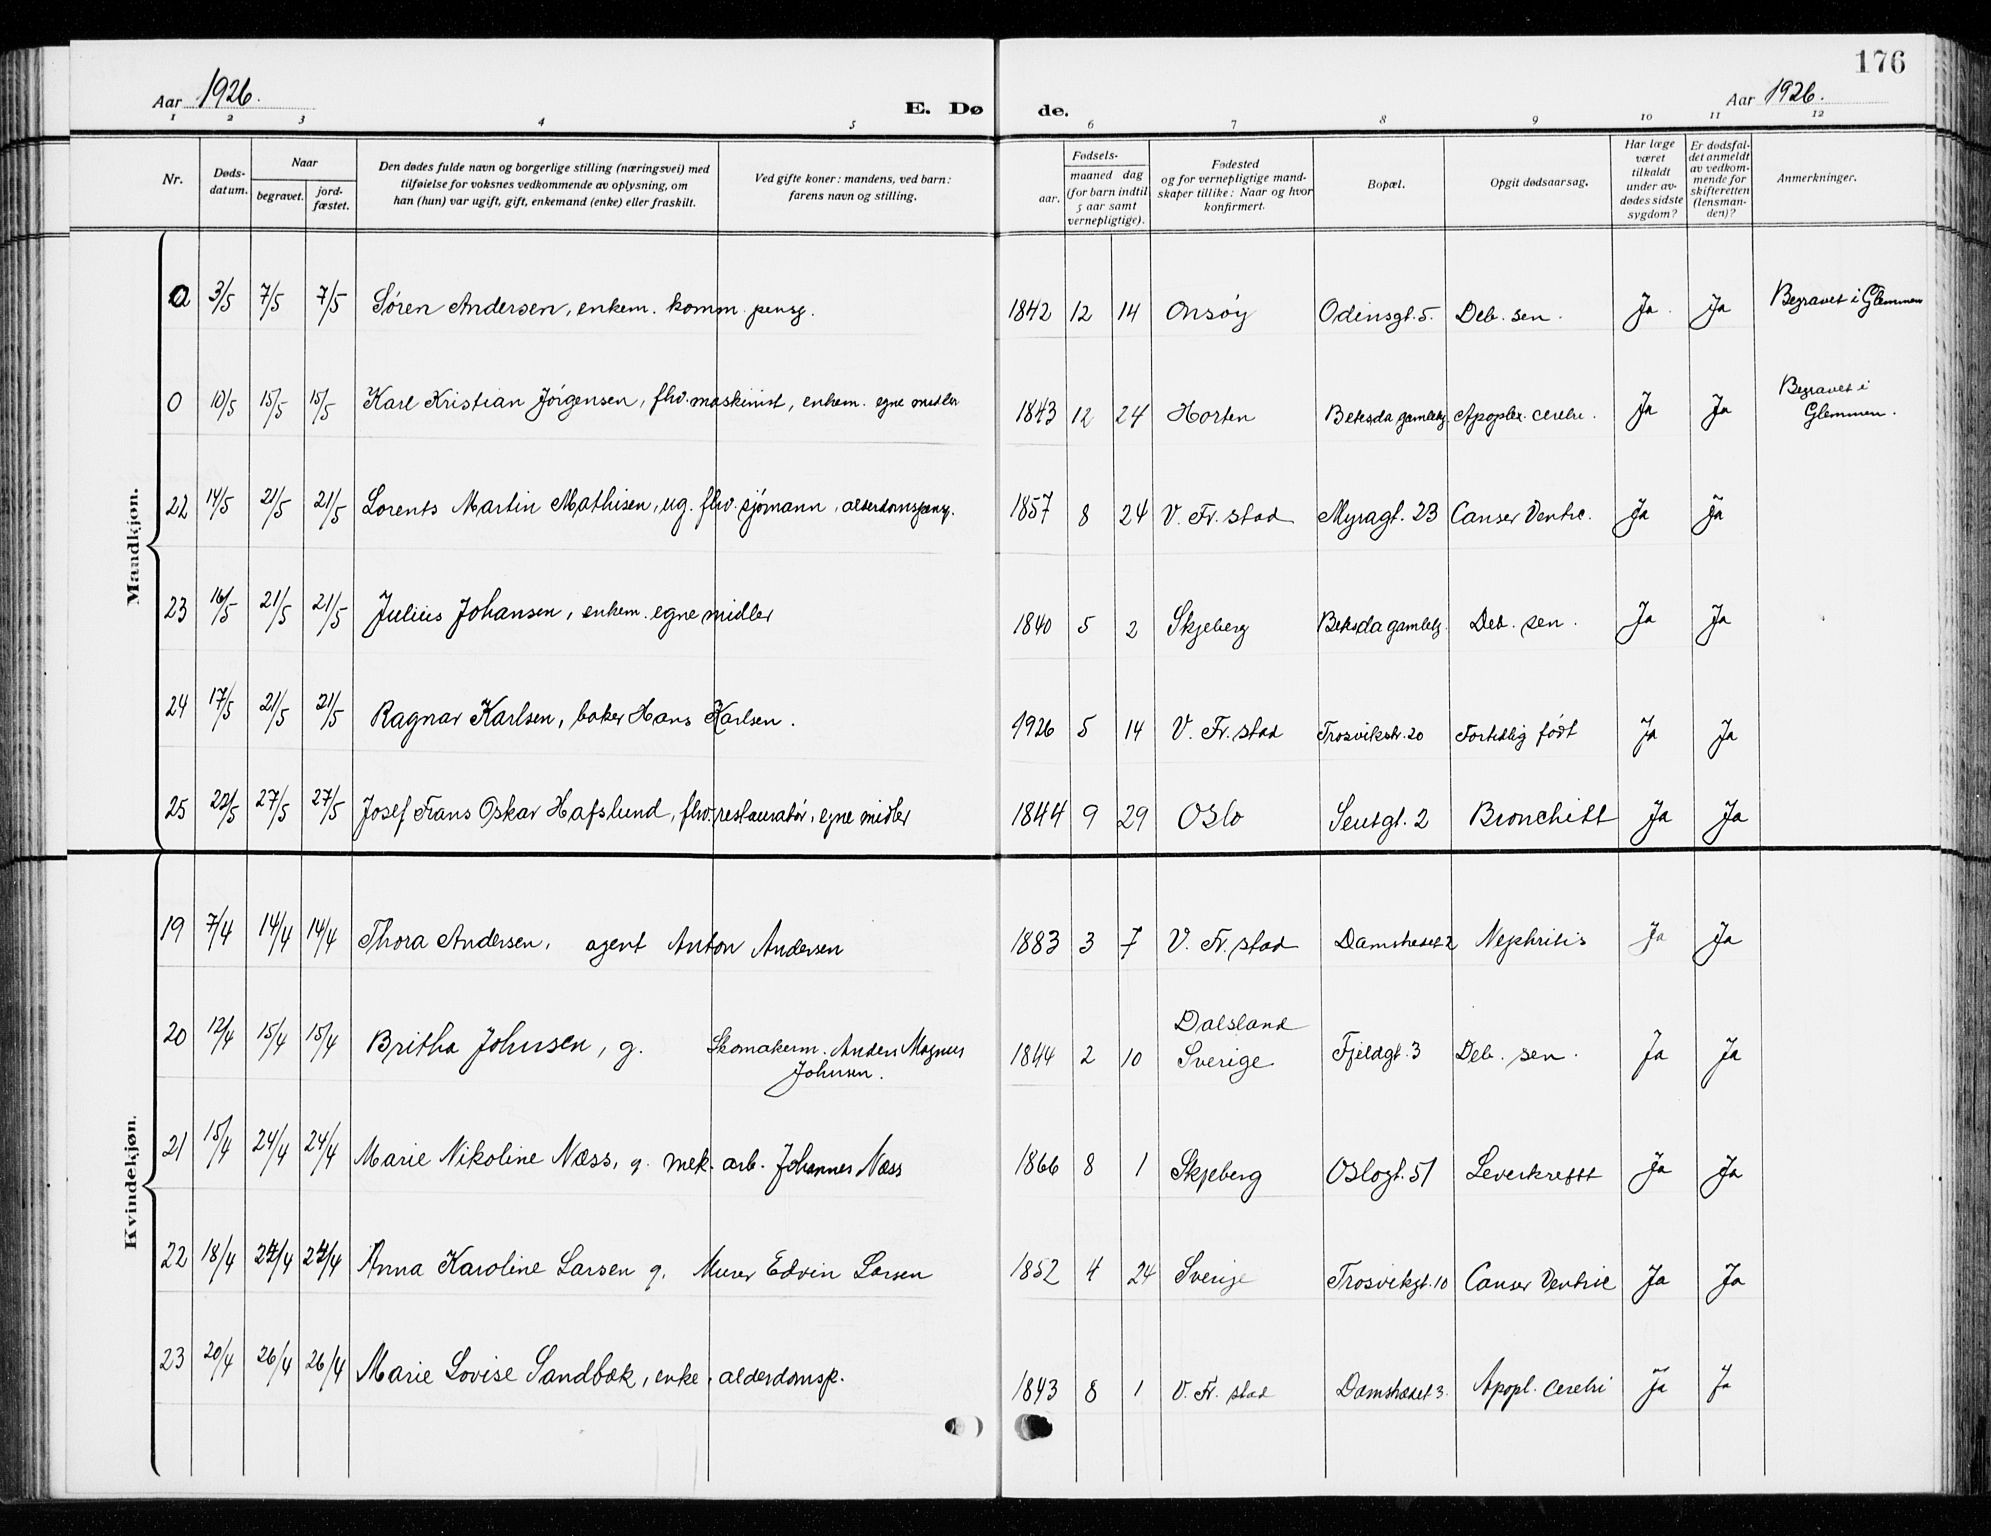 176
Aar 1926.
E. Dø de.
Aar 1926.
1 2 3 4 5 6 7 8 9 10 11 12
Nr.
Døds-
datum.
Naar
begravet.
jord-
fæstet.
Den dødes fulde navn og borgerlige stilling (næringsvei) med
tilføielse for voksnes vedkommende av oplysning, om
han (hun) var ugift, gift, enkemand (enke) eller fraskilt.
Ved gifte koner: mandens, ved barn:
farens navn og stilling.
Fødsels-
aar.
maaned dag
(for barn indtil
5 aar samt
vernepligtige).
Fødested
og for vernepligtige mand-
skaper tillike: Naar og hvor
konfirmert.
Bopæl.
Opgit dødsaarsag.
Har læge
været
tilkaldt
under av-
dødes sidste
sygdom?
Er dødsfal-
det anmeldt
av vedkom-
mende for
skifteretten
(lensman-
den)?
Anmerkninger.
Mandkjøn.
0 3/5 7/5 7/5 Søren Andersen, enkem. komm. pensj. 1842 12 14 Onsøy Odinsgt. 5. Deb. sen. Ja. Ja Begravet i Glemmen
0 10/5 15/5 15/5 Karl Kristian Jørgensen, fhv. maskinist, enkem. egne midler 1843 12 24 Horten Betesda gamleh. Apoplex. cerebri. Ja Ja Begravet i
Glemmen.
22 14/5 21/5 21/5 Lorents Martin Mathisen, ug. fhv. sjømann, alderdomspensj. 1857 8 24 V. Fr. stad Myragt. 23 Canser Ventric. Ja Ja
23 16/5 21/5 21/5 Julius Johansen, enkem. egne midler 1840 5 2 Skjeberg Betesda gamleh. Deb. sen. Ja Ja
24 17/5 21/5 21/5 Ragnar Karlsen, baker Hans Karlsen. 1926 5 14 V. Fr. stad Trosvikstr. 20 Fortidlig født Ja Ja
25 22/5 27/5 27/5 Josef Frans Oskar Hafslund, fhv. restauratør, egne midler 1844 9 29 Oslo Seutgt. 2 Bronchitt Ja Ja
Kvindekjøn.
19 7/4 14/4 14/4 Thora Andersen, agent Anton Andersen 1883 3 7 V. Fr. stad Damstredet 2 Nephritis Ja Ja
20 12/4 15/4 15/4 Britha Johnsen, g. Skomakerm. Anders Magnus
Johnsen. 1844 2 10 Dalsland
Sverige Fjeldgt. 3 Deb. sen. Ja Ja
21 15/4 24/4 24/4 Marie Nikoline Næss, g. mek. arb. Johannes Næss 1866 8 1 Skjeberg Oslogt. 51 Leverkreftt Ja Ja
22 18/4 24/4 24/4 Anna Karoline Larsen g. Murer Edvin Larsen 1852 4 24 Sverige Trosvikgt. 10 Canser Ventric Ja Ja
23 20/4 26/4 26/4 Marie Lovise Sandbæk, enke, alderdomsp. 1843 8 1 V. Fr. stad Damstrædet 3. Apopl. cerebri Ja Ja